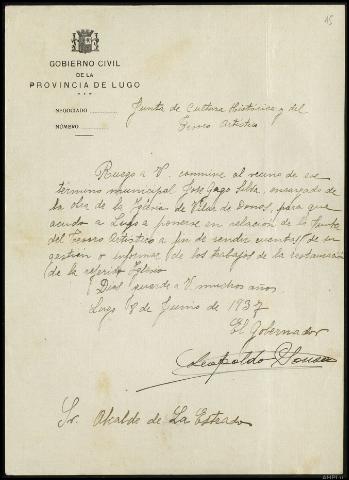 15
GOBIERNO CIVIL
DE LA
PROVINCIA DE LUGO
NEGOCIADO
Junta de Cultura Histórica y del
NÚMERO
Tesoro Artístico
Ruego a V. conmine al vecino de ese
término municipal José Gago Silva, encargado de
la obra de la Iglesia de Vilar de Donas, para que
acuda a Lugo a ponerse en relación de la Junta
del Tesoro Artístico a fin de rendir cuentas de su
gestion e informar de los trabajos de la restauración
de la referida Iglesia
Dios guarde a V muchos años.
Lugo 8 de Junio de 1937
El Gobernador
Leopoldo Sousa
Sr. Alcalde de La Estrada